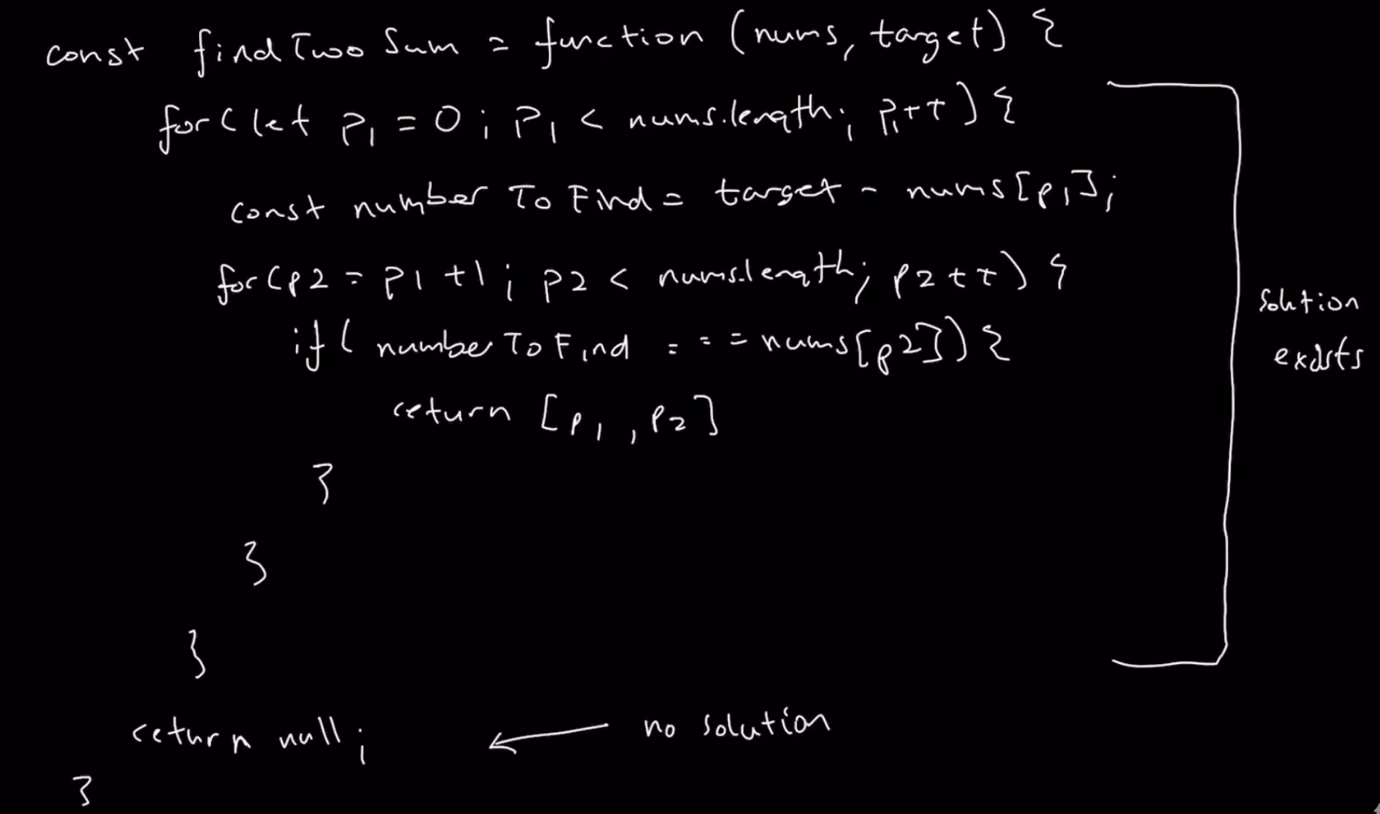 const findTwoSum = function (nums, target) {
for(let p1 = 0; p1 < nums.length; p1++){
const numberToFind = target - nums[p1];
for(p2 = p1+1; p2 < nums.length; p2++){
if(numberToFind === nums[p2]){
return [p1, p2]
}
}
}
return null; ← no solution
}
solution
exists